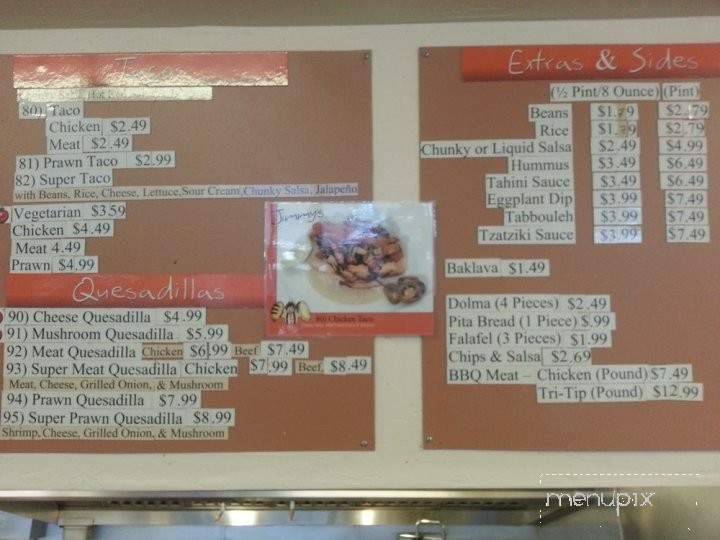 Tacos
80) Taco
Chicken $2.49
Meat $2.49
81) Prawn Taco $2.99
82) Super Taco
with Beans, Rice, Cheese, Lettuce,Sour Cream,Chunky Salsa, Jalapeño
Vegetarian $3.59
Chicken $4.49
Meat 4.49
Prawn $4.99
Quesadillas
90) Cheese Quesadilla $4.99
91) Mushroom Quesadilla $5.99
92) Meat Quesadilla Chicken $6.99 Beef $7.49
93) Super Meat Quesadilla Chicken $7.99 Beef $8.49
Meat, Cheese, Grilled Onion, & Mushroom
94) Prawn Quesadilla $7.99
95) Super Prawn Quesadilla $8.99
Shrimp, Cheese, Grilled Onion, & Mushroom
Jimmy's
80) Chicken Taco
Extras & Sides
(½ Pint/8 Ounce) (Pint)
Beans $2.79
Rice $2.79
Chunky or Liquid Salsa $2.49 $4.99
Hummus $3.49 $6.49
Tahini Sauce $3.49 $6.49
Eggplant Dip $3.99 $7.49
Tabbouleh $3.99 $7.49
Tzatziki Sauce $3.99 $7.49
Baklava $1.49
Dolma (4 Pieces) $2.49
Pita Bread (1 Piece) $.99
Falafel (3 Pieces) $1.99
Chips & Salsa $2.69
BBQ Meat – Chicken (Pound) $7.49
Tri-Tip (Pound) $12.99
menupix